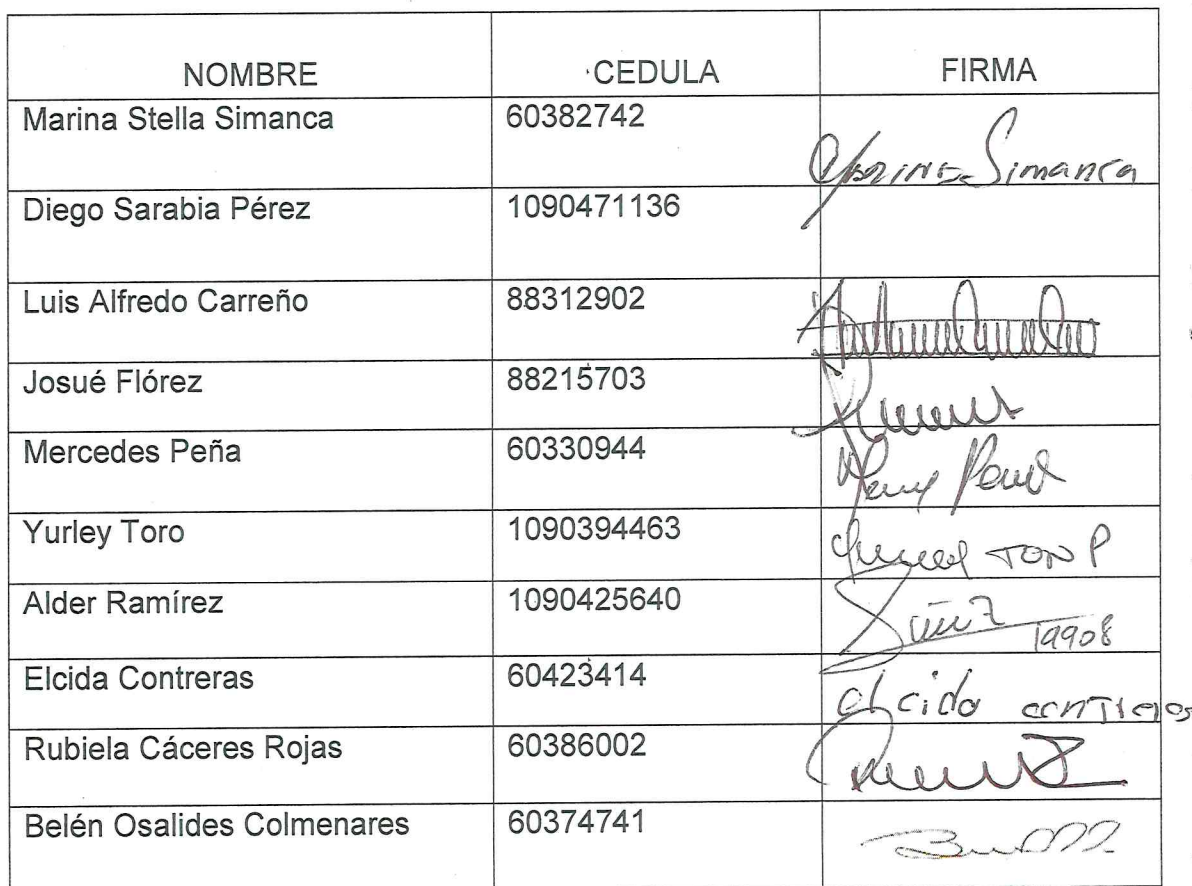 NOMBRE CEDULA FIRMA
Marina Stella Simanca 60382742
Marina Simanca
Diego Sarabia Pérez 1090471136
Luis Alfredo Carreño 88312902
Josué Flórez 88215703
Mercedes Peña 60330944
Yurley Toro 1090394463
Alder Ramírez 1090425640
19908
Elcida Contreras 60423414
elcida contreras
Rubiela Cáceres Rojas 60386002
Belén Osalides Colmenares 60374741